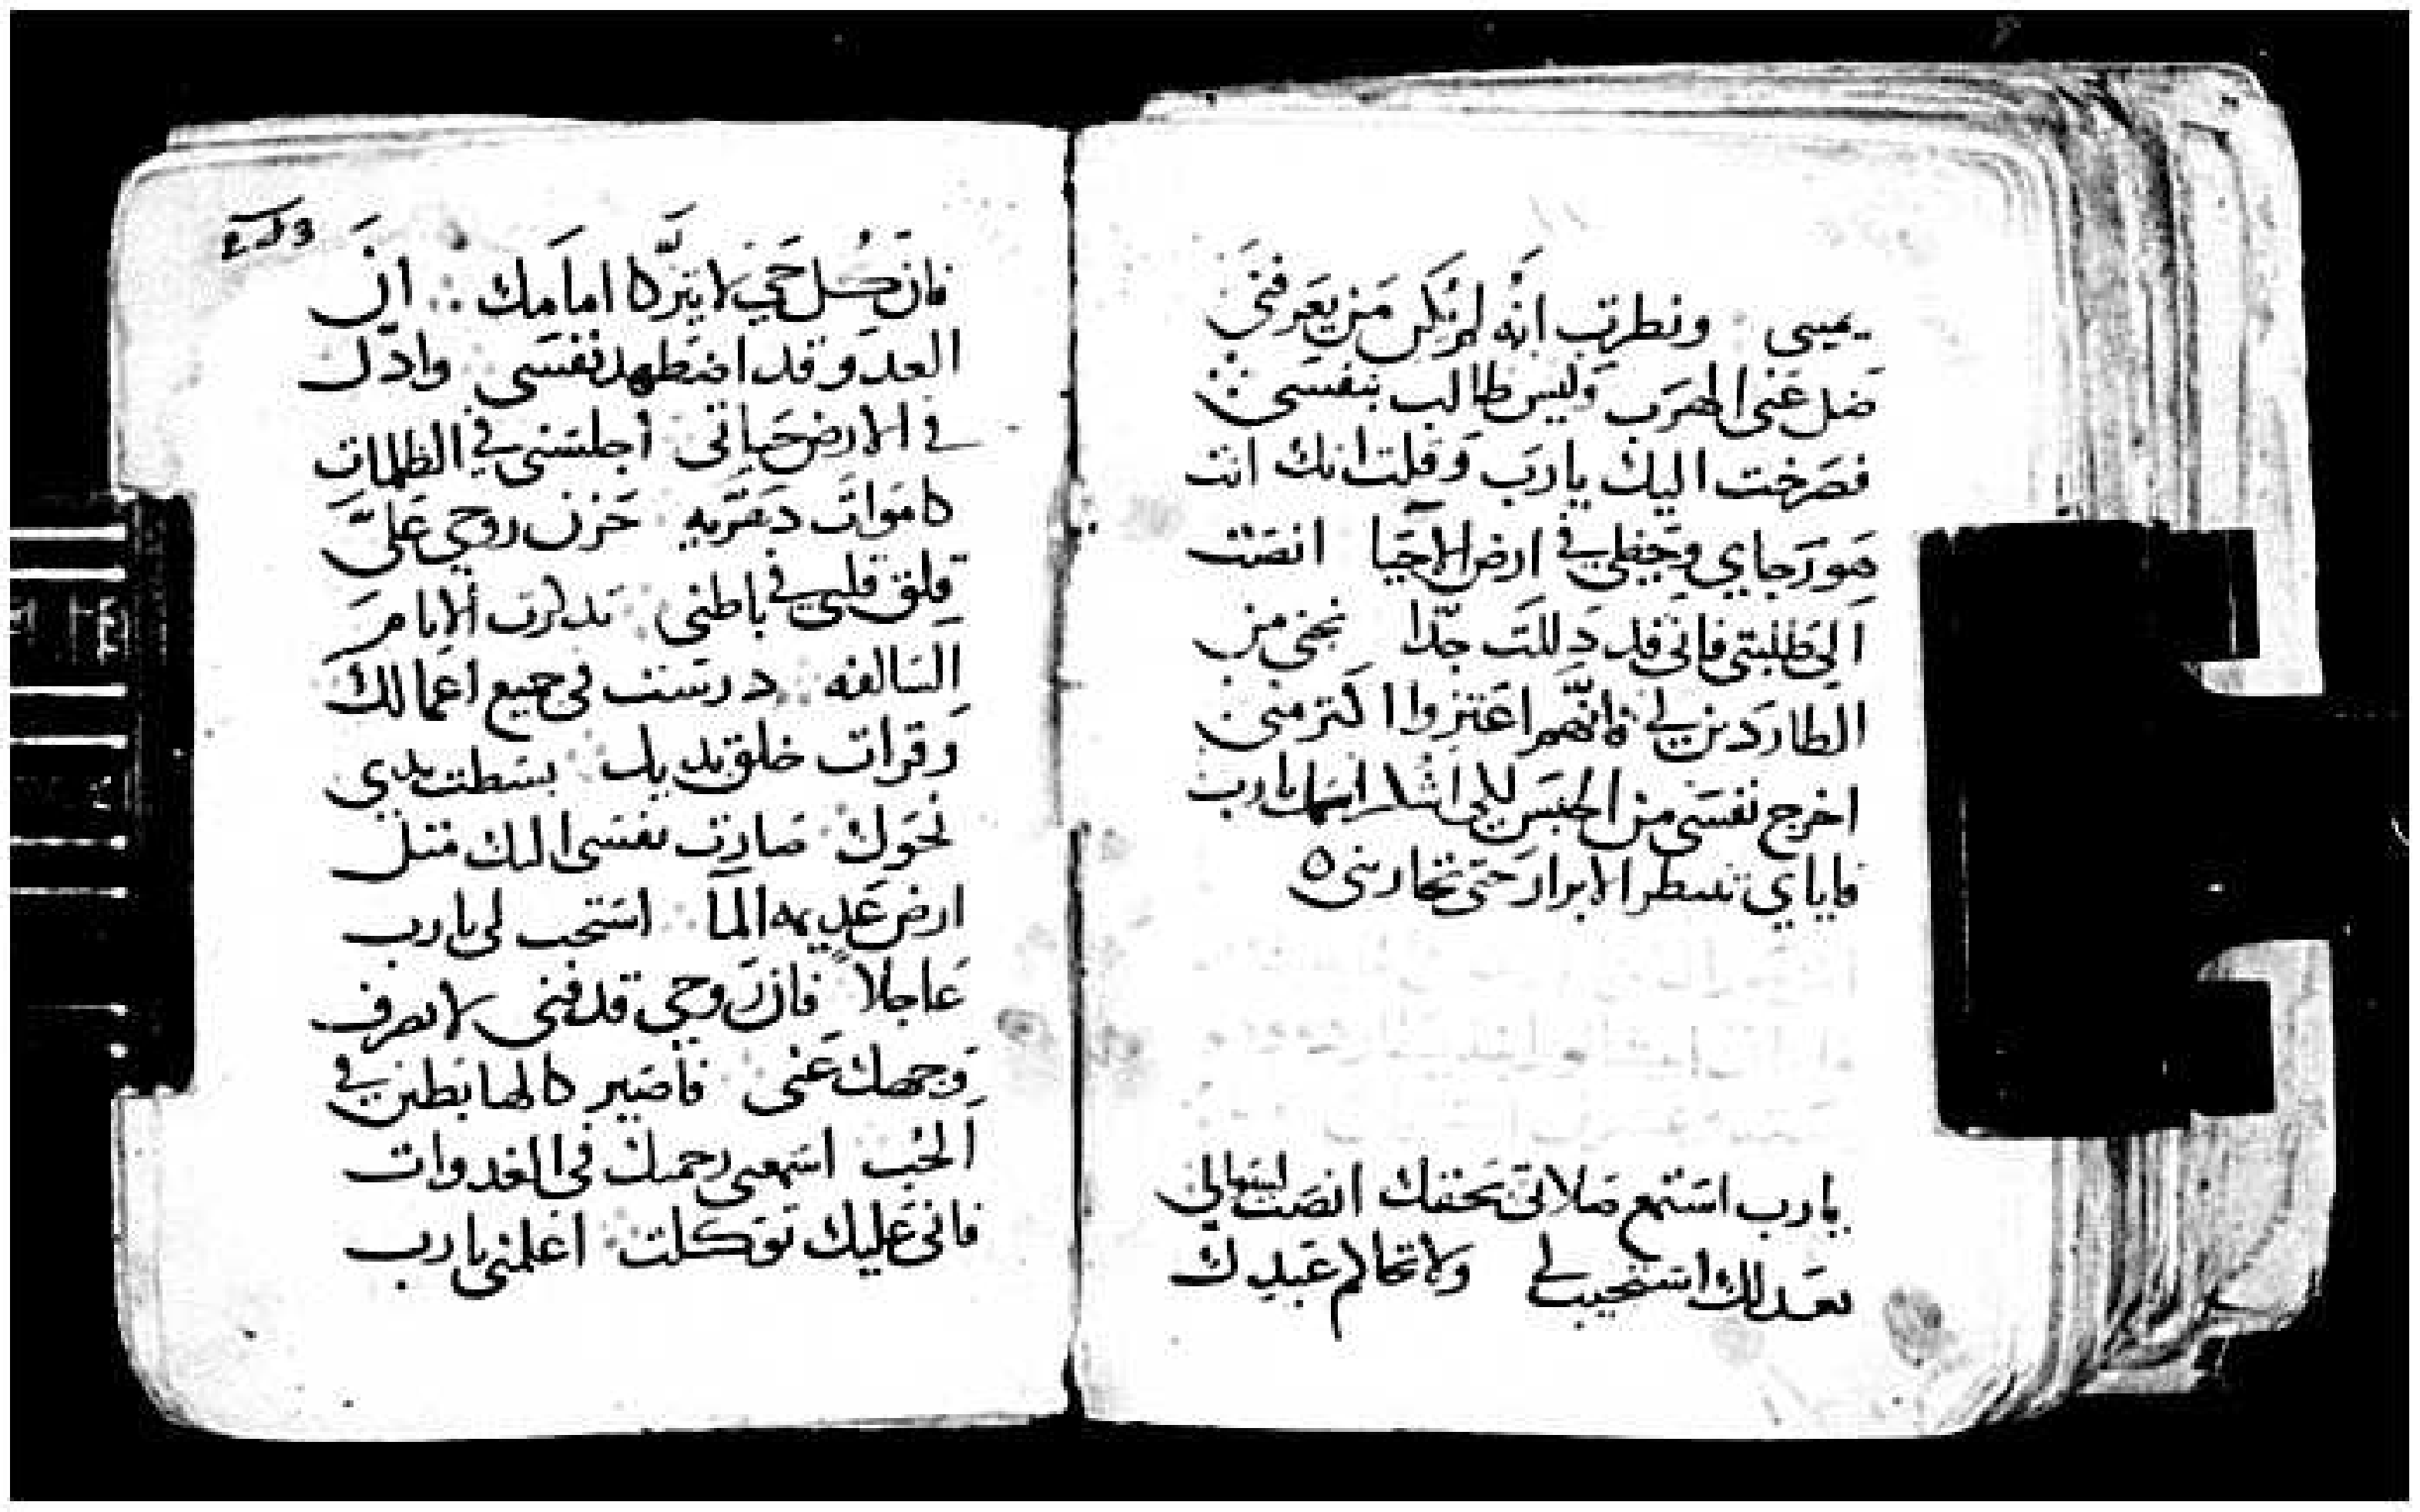 يميني ونظرت انه لم يكن من يعرفني
ضل عني المهرب وليس طالب بنفسي
فصرخت اليك يا رب وقلت انك انت
هو رجاي وحظي في ارض الاحيا انصت
الى طلبتي فاني قد دللت جدا نجني من
الطاردين لي فانهم اعتزوا اكتر مني
اخرج نفسي من الحبس لاسمك يا رب
فاياي تنتطر الابرار حتى تجاريني ه
يا رب استمع صلاتي بحقك انصت لسوالي
بعدلك استجيب لي ولا تحاكم عبدك
فان كل حي لا يتزكا امامك ان
العدو قد اضطهد نفسي وادل
في الارض حياتي اجلسني في الظلمات
كاموات دهريه حزن روحي علي
قلق قلبي في باطني تدكرت الايام
السالفه درست في جميع اعمالك
وقرات خلق يديك بسطت يدي
نحوك صارت نفسي اليك متل
ارض عديمه الما استجب لي يا رب
عاجلا فان روحي قد فني لا تصرف
وجهك عني فاصير كالهابطين في
الجب اسمعني رحمتك في الغدوات
فاني عليك توكلت اعلمني يا رب